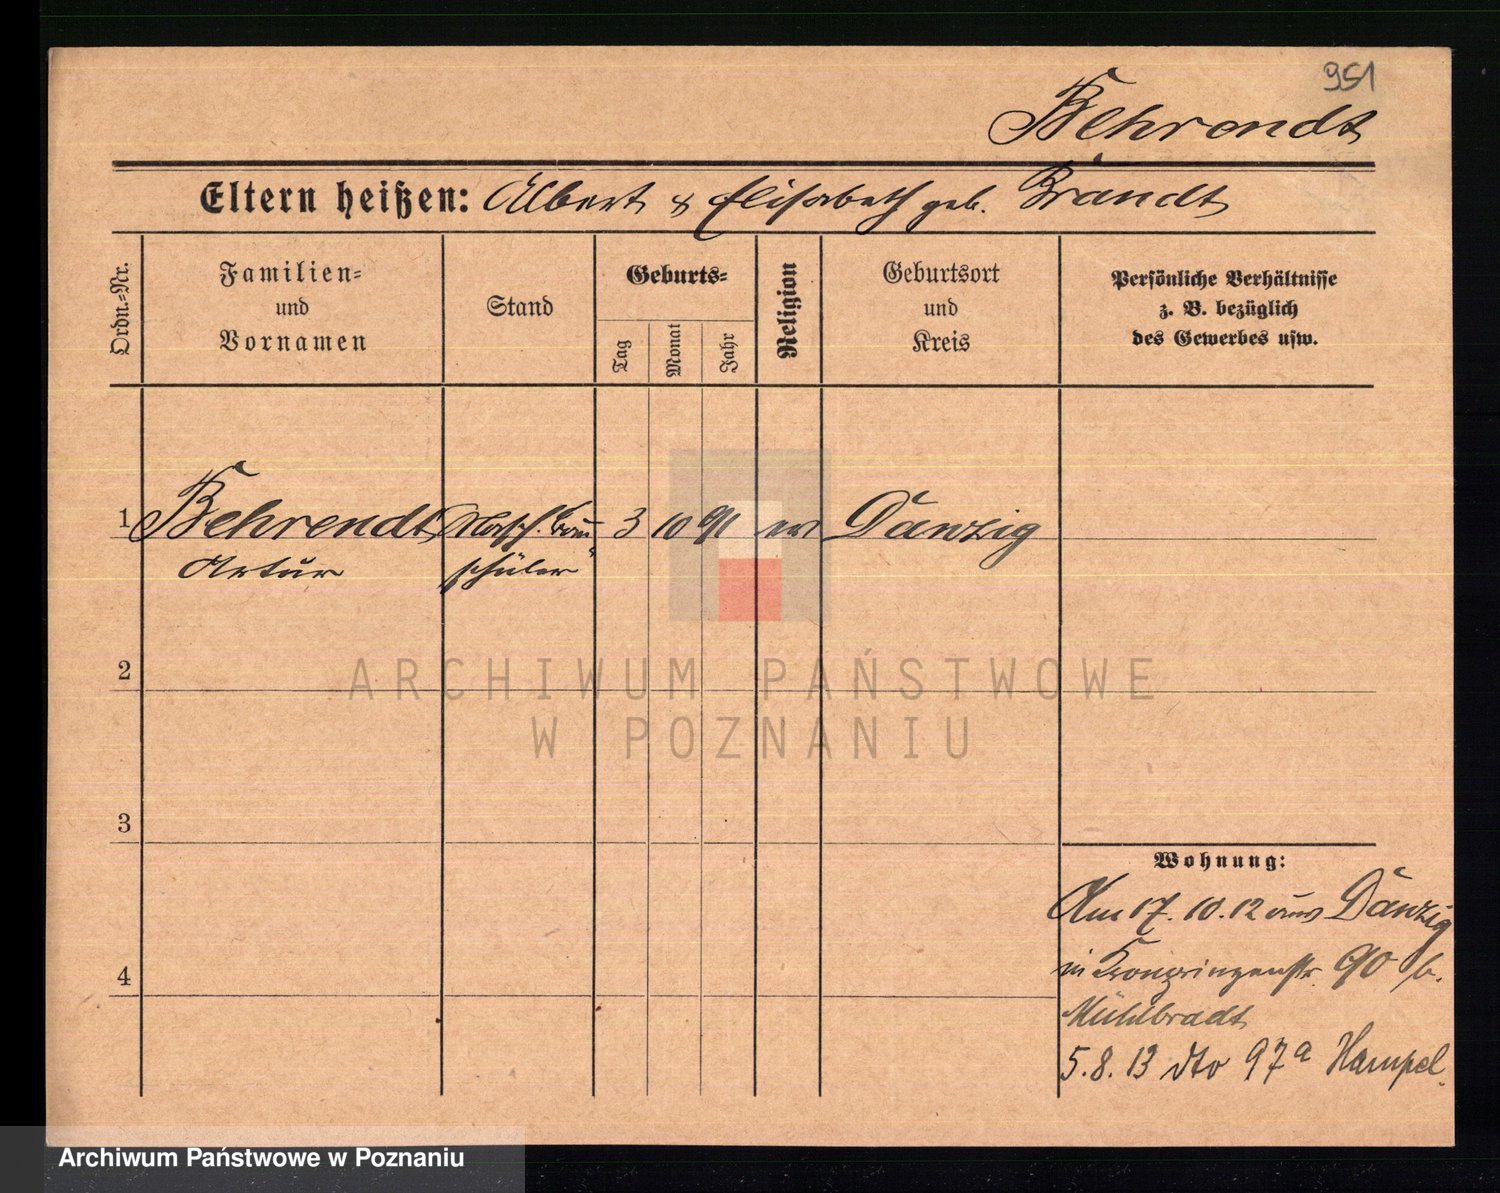 951
Behrendt
Eltern heißen: Albert & Elisabeth geb. Brandt
Ordn.-Nr.
Familien-
und
Vornamen
Stand
Geburts-
Tag
Monat
Jahr
Religion
Geburtsort
und
Kreis
Persönliche Verhältnisse
z. B. bezüglich
des Gewerbes usw.
1 Behrendt Masch. Bau 3 10 91 ev Danzig
Artur schüler
2
ARCHIWUM PAŃSTWOWE
W POZNANIU
3
Wohnung:
Am 17. 10. 12 aus Danzig
in Kronprinzenstr. 90 b.
4
Mühlbradt
5. 8. 13 dto 97a Hampel.
Archiwum Państwowe w Poznaniu